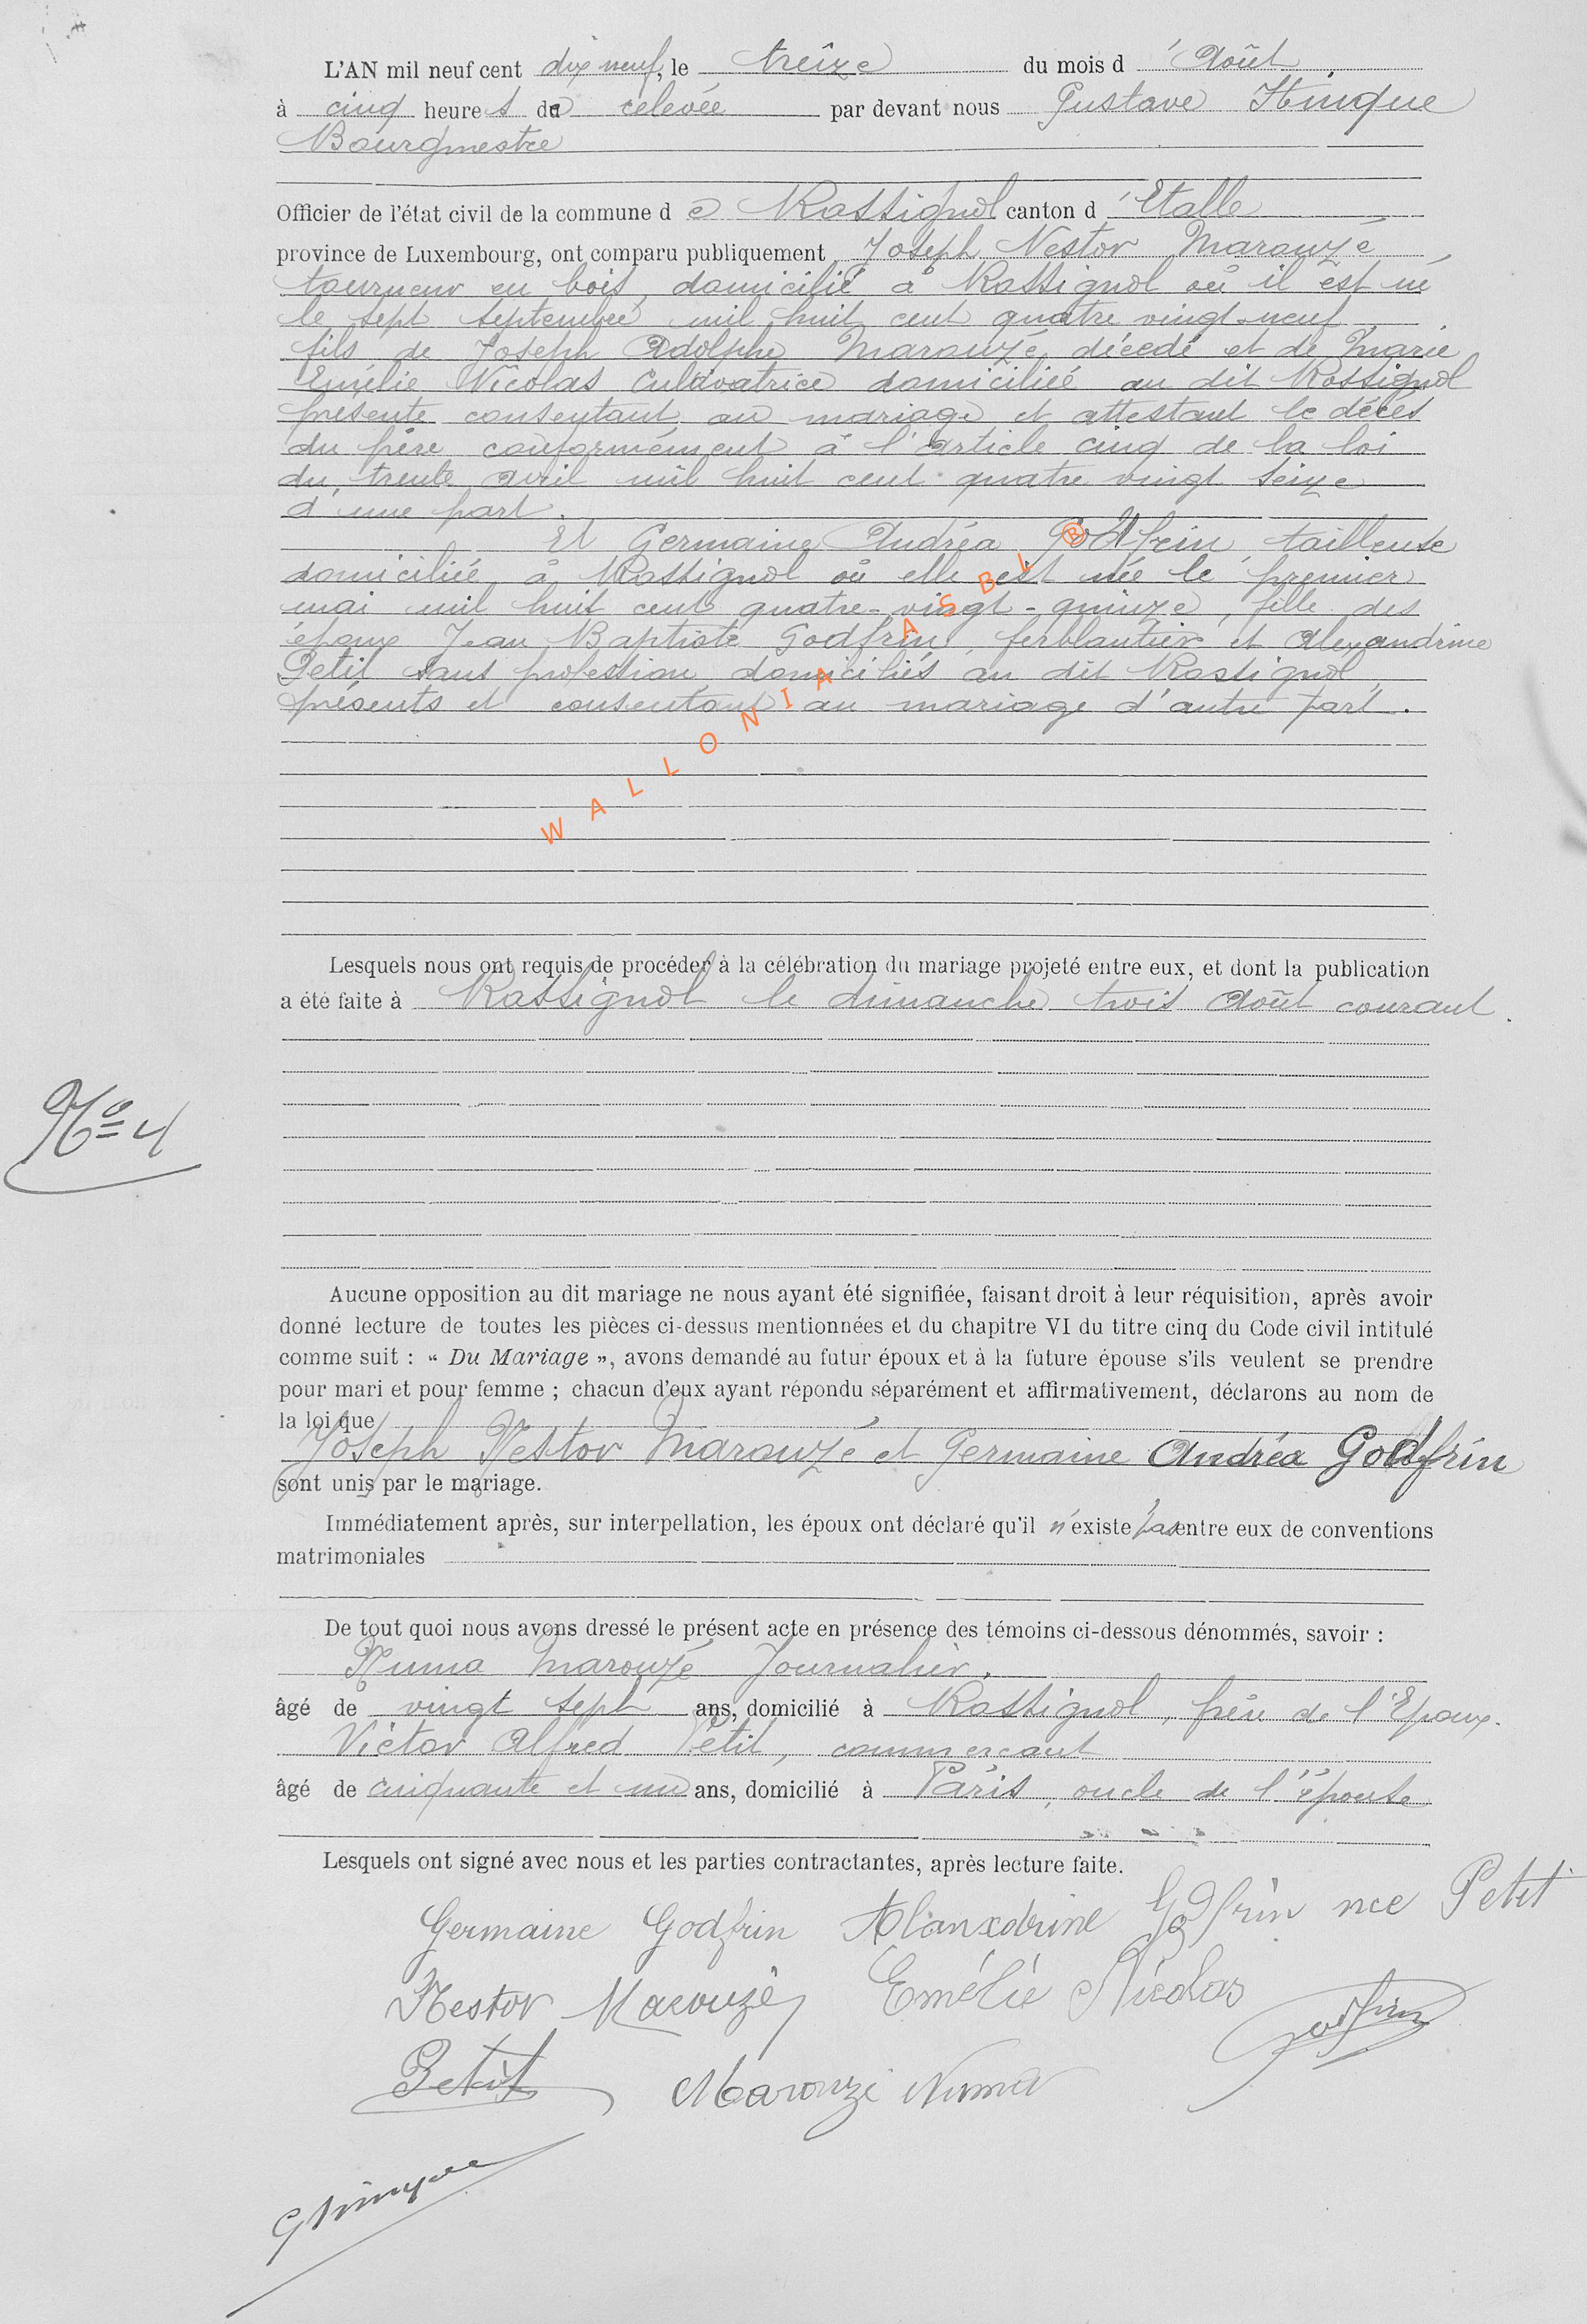 L'AN mil neuf cent dix neuf, le treize du mois d'Août
à cinq heures de relevée par devant nous Gustave Hinque
Bourgmestre
Officier de l'état civil de la commune de Rossignol canton d'Etalle
province de Luxembourg, ont comparu publiquement Joseph Nestor Marouzé
tourneur en bois, domicilié à Rossignol où il est né
le sept septembre mil huit cent quatre vingt-neuf
fils de Joseph Adolphe Marouzé, décédé et de Marie
Emélie Nicolas Cultivatrice domiciliée au dit Rossignol
présente consentant au mariage et attestant le décès
du père conformément à l'article cinq de la loi
du trente avril mil huit cent quatre vingt seize
d'une part.
Et Germaine Andréa Godfrin tailleuse
domiciliée à Rossignol où elle est née le premier
mai mil huit cent quatre-vingt-quinze, fille des
époux Jean Baptiste Godfrin, ferblantier et Alexandrine
Petit sans profession domiciliés au dit Rossignol,
présents et consentant au mariage d'autre part.
WALLONIA ASBL ®
Lesquels nous ont requis de procéder à la célébration du mariage projeté entre eux, et dont la publication
a été faite à Rossignol le dimanche trois Août courant.
No 4
Aucune opposition au dit mariage ne nous ayant été signifiée, faisant droit à leur réquisition, après avoir
donné lecture de toutes les pièces ci-dessus mentionnées et du chapitre VI du titre cinq du Code civil intitulé
comme suit : « Du Mariage », avons demandé au futur époux et à la future épouse s'ils veulent se prendre
pour mari et pour femme ; chacun d'eux ayant répondu séparément et affirmativement, déclarons au nom de
la loi que
Joseph Nestor Marouzé et Germaine Andréa Godfrin
sont unis par le mariage.
Immédiatement après, sur interpellation, les époux ont déclaré qu'il n'existe pas entre eux de conventions
matrimoniales
De tout quoi nous avons dressé le présent acte en présence des témoins ci-dessous dénommés, savoir :
Numa Marouzé Journalier.
âgé de vingt sept ans, domicilié à Rossignol, frère de l'Epoux.
Victor Alfred Petit, commerçant
âgé de cinquante et un ans, domicilié à Paris, oncle de l'épouse
Lesquels ont signé avec nous et les parties contractantes, après lecture faite.
Germaine Godfrin Alanxdrine Godfrin nee Petit
Nestor Marouzé Emélie Nicolas Godfrin
Petit Marouzé Numa
G Hinque